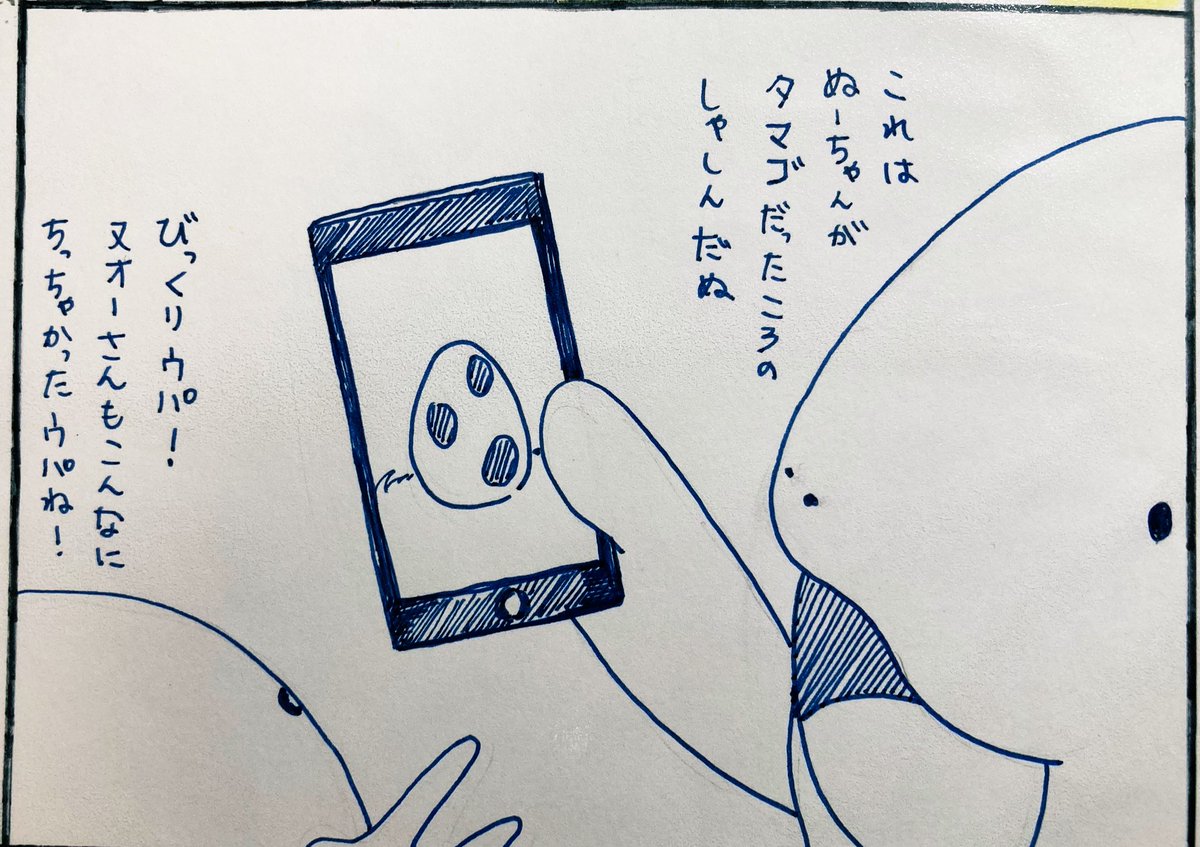 これは
ぬーちゃんが
タマゴだったころの
しゃしんだぬ
びっくりウパ!
ヌオーさんもこんなに
ちっちゃかったウパね!